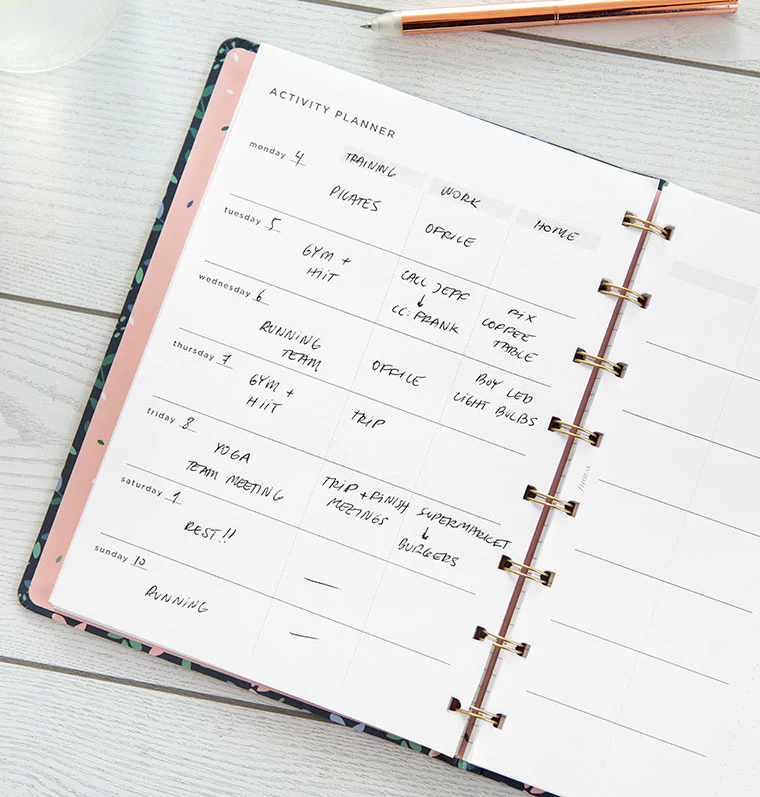 ACTIVITY PLANNER
TRAINING
WORK
HOME
monday 4
PILATES
OFFICE
tuesday 5
GYM +
HiiT
CALL JEFF
↓
CC: FRANK
FiX
COFFEE
TABLE
wednesday 6
RUNNING
TEAM
OFFICE
BUY LED
LIGHT BULBS
thursday 7
GYM +
HiiT
TRIP
friday 8
YOGA
TEAM MEETING
TRIP + FINISH
MEETINGS
SUPERMARKET
↓
BURGERS
saturday 9
REST!!
—
sunday 10
RUNNiNG
—